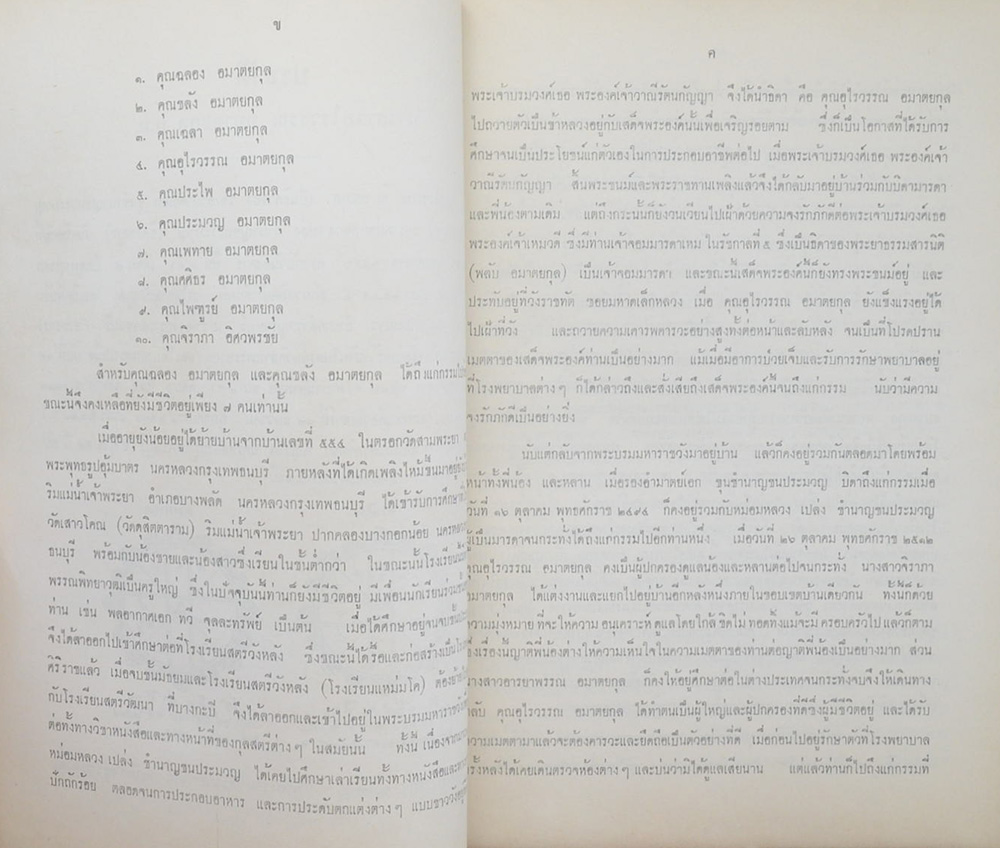 ข
๑. คุณฉลอง อมาตยกุล
๒. คุณชลัง อมาตยกุล
๓. คุณเฉลา อมาตยกุล
๔. คุณอุไรวรรณ อมาตยกุล
๕. คุณประไพ อมาตยกุล
๖. คุณประมวญ อมาตยกุล
๗. คุณเพทาย อมาตยกุล
๘. คุณศศิธร อมาตยกุล
๙. คุณไพฑูรย์ อมาตยกุล
๑๐. คุณจิราภา อิศวพรชัย
สำหรับคุณฉลอง อมาตยกุล และคุณชลัง อมาตยกุล ได้ถึงแก่กรรม
ขณะนี้จึงคงเหลือที่ยังมีชีวิตอยู่เพียง ๗ คนเท่านั้น
เมื่ออายุยังน้อยอยู่ได้ย้ายบ้านจากบ้านเลขที่ ๕๕๔ ในตรอกวัดสามพระยา
พระพุทธรูปอุ้มบาตร นครหลวงกรุงเทพธนบุรี ภายหลังที่ได้เกิดเพลิงไหม้ขึ้นมาอยู่
ริมแม่น้ำเจ้าพระยา อำเภอบางพลัด นครหลวงกรุงเทพธนบุรี ได้เข้ารับการศึกษา
วัดเสาวโคณ (วัดดุสิตตาราม) ริมแม่น้ำเจ้าพระยา ปากคลองบางกอกน้อย
ธนบุรี พร้อมกับน้องชายและน้องสาวซึ่งเรียนในชั้นต่ำกว่า ในขณะนั้นโรงเรียน
พรรณพิทยาวุฒิเป็นครูใหญ่ ซึ่งในปัจจุบันนี้ท่านก็ยังมีชีวิตอยู่ มีเพื่อนนักเรียนร่วม
ท่าน เช่น พลอากาศเอก ทวี จุลละทรัพย์ เป็นต้น เมื่อได้ศึกษาอยู่จนจบ
จึงได้ลาออกไปเข้าศึกษาต่อที่โรงเรียนสตรีวังหลัง ซึ่งขณะนี้ได้รื้อและก่อสร้างเป็น
ศิริราชแล้ว เมื่อจบชั้นมัธยมและโรงเรียนสตรีวังหลัง (โรงเรียนแหม่มโค) ต้องย้าย
กับโรงเรียนสตรีวัฒนา ที่บางกะปี จึงได้ลาออกและเข้าไปอยู่ในพระบรมมหาราชวัง
ต่อทั้งทางวิชาหนังสือและทางหน้าที่ของกุลสตรีต่างๆ ในสมัยนั้น ทั้งนี้ เนื่องจาก
หม่อมหลวง เปล่ง ชำนาญขนประมวญ ได้เคยไปศึกษาเล่าเรียนทั้งทางหนังสือและ
ปักถักร้อย ตลอดจนการประกอบอาหาร และการประดับตกแต่งต่างๆ แบบชาววัง
ค
พระเจ้าบรมวงศ์เธอ พระองค์เจ้าวาณีรัตนกัญญา จึงได้นำธิดา คือ คุณอุไรวรรณ อมาตยกุล
ไปถวายตัวเป็นข้าหลวงอยู่กับเสด็จพระองค์นั้นเพื่อเจริญรอยตาม ซึ่งก็เป็นโอกาสที่ได้รับการ
ศึกษาจนเป็นประโยชน์แก่ตัวเองในการประกอบอาชีพต่อไป เมื่อพระเจ้าบรมวงศ์เธอ พระองค์เจ้า
วาณีรัตนกัญญา สิ้นพระชนม์และพระราชทานเพลิงแล้วจึงได้กลับมาอยู่บ้านร่วมกับบิดามารดา
และพี่น้องตามเดิม แต่ถึงกระนั้นก็ยังวนเวียนไปเฝ้าด้วยความจงรักภักดีต่อพระเจ้าบรมวงศ์เธอ
พระองค์เจ้าเหมวดี ซึ่งมีท่านเจ้าจอมมารดาเหม ในรัชกาลที่ ๕ ซึ่งเป็นธิดาของพระยาธรรมสารนิติ
(พลับ อมาตยกุล) เป็นเจ้าจอมมารดา และขณะนี้เสด็จพระองค์นี้ก็ยังทรงพระชนม์อยู่ และ
ประทับอยู่ที่วังราชทัต ซอยมหาดเล็กหลวง เมื่อ คุณอุไรวรรณ อมาตยกุล ยังแข็งแรงอยู่ได้
ไปเฝ้าที่วัง และถวายความเคารพคารวะอย่างสูงทั้งต่อหน้าและลับหลัง จนเป็นที่โปรดปราน
เมตตาของเสด็จพระองค์ท่านเป็นอย่างมาก แม้เมื่อมีอาการป่วยเจ็บและรับการรักษาพยาบาลอยู่
ที่โรงพยาบาลต่างๆ ก็ได้กล่าวถึงและสั่งเสียถึงเสด็จพระองค์นี้จนถึงแก่กรรม นับว่ามีความ
จงรักภักดีเป็นอย่างยิ่ง
นับแต่กลับจากพระบรมมหาราชวังมาอยู่บ้าน แล้วก็คงอยู่รวมกันตลอดมาโดยพร้อม
หน้าทั้งพี่น้อง และหลาน เมื่อรองอำมาตย์เอก ขุนชำนาญขนประมวญ บิดาถึงแก่กรรมเมื่อ
วันที่ ๑๖ ตุลาคม พุทธศักราช ๒๔๙๔ ก็คงอยู่รวมกับหม่อมหลวง เปล่ง ชำนาญขนประมวญ
ผู้เป็นมารดาจนกระทั่งได้ถึงแก่กรรมไปอีกท่านหนึ่ง เมื่อวันที่ ๒๖ ตุลาคม พุทธศักราช ๒๕๑๒
คุณอุไรวรรณ อมาตยกุล คงเป็นผู้ปกครองดูแลน้องและหลานต่อไปจนกระทั่ง นางสาวจิราภา
อมาตยกุล ได้แต่งงานและแยกไปอยู่บ้านอีกหลังหนึ่งภายในขอบเขตบ้านเดียวกัน ทั้งนี้ก็ด้วย
ความมุ่งหมาย ที่จะให้ความ อนุเคราะห์ ดูแล โดยใกล้ ชิดไม่ ทอดทิ้งแม้จะมี ครอบครัวไป แล้วก็ตาม
ซึ่งเรื่องนี้ญาติพี่น้องต่างให้ความเห็นใจในความเมตตาของท่านต่อญาติพี่น้องเป็นอย่างมาก ส่วน
นางสาวอารยาพรรณ อมาตยกุล ก็คงให้อยู่ศึกษาต่อในต่างประเทศจนกระทั่งจบจึงให้เดินทาง
กลับ คุณอุไรวรรณ อมาตยกุล ได้ทำตนเป็นผู้ใหญ่และผู้ปกครองที่ดีซึ่งผู้มีชีวิตอยู่ และได้รับ
ความเมตตามาแล้วจะต้องคารวะและยึดถือเป็นตัวอย่างที่ดี เมื่อก่อนไปอยู่รักษาตัวที่โรงพยาบาล
ครั้งหลังได้เคยเดินตรวจห้องต่างๆ และบ่นว่ามิได้ดูแลเสียนาน แต่แล้วท่านก็ไปถึงแก่กรรมที่